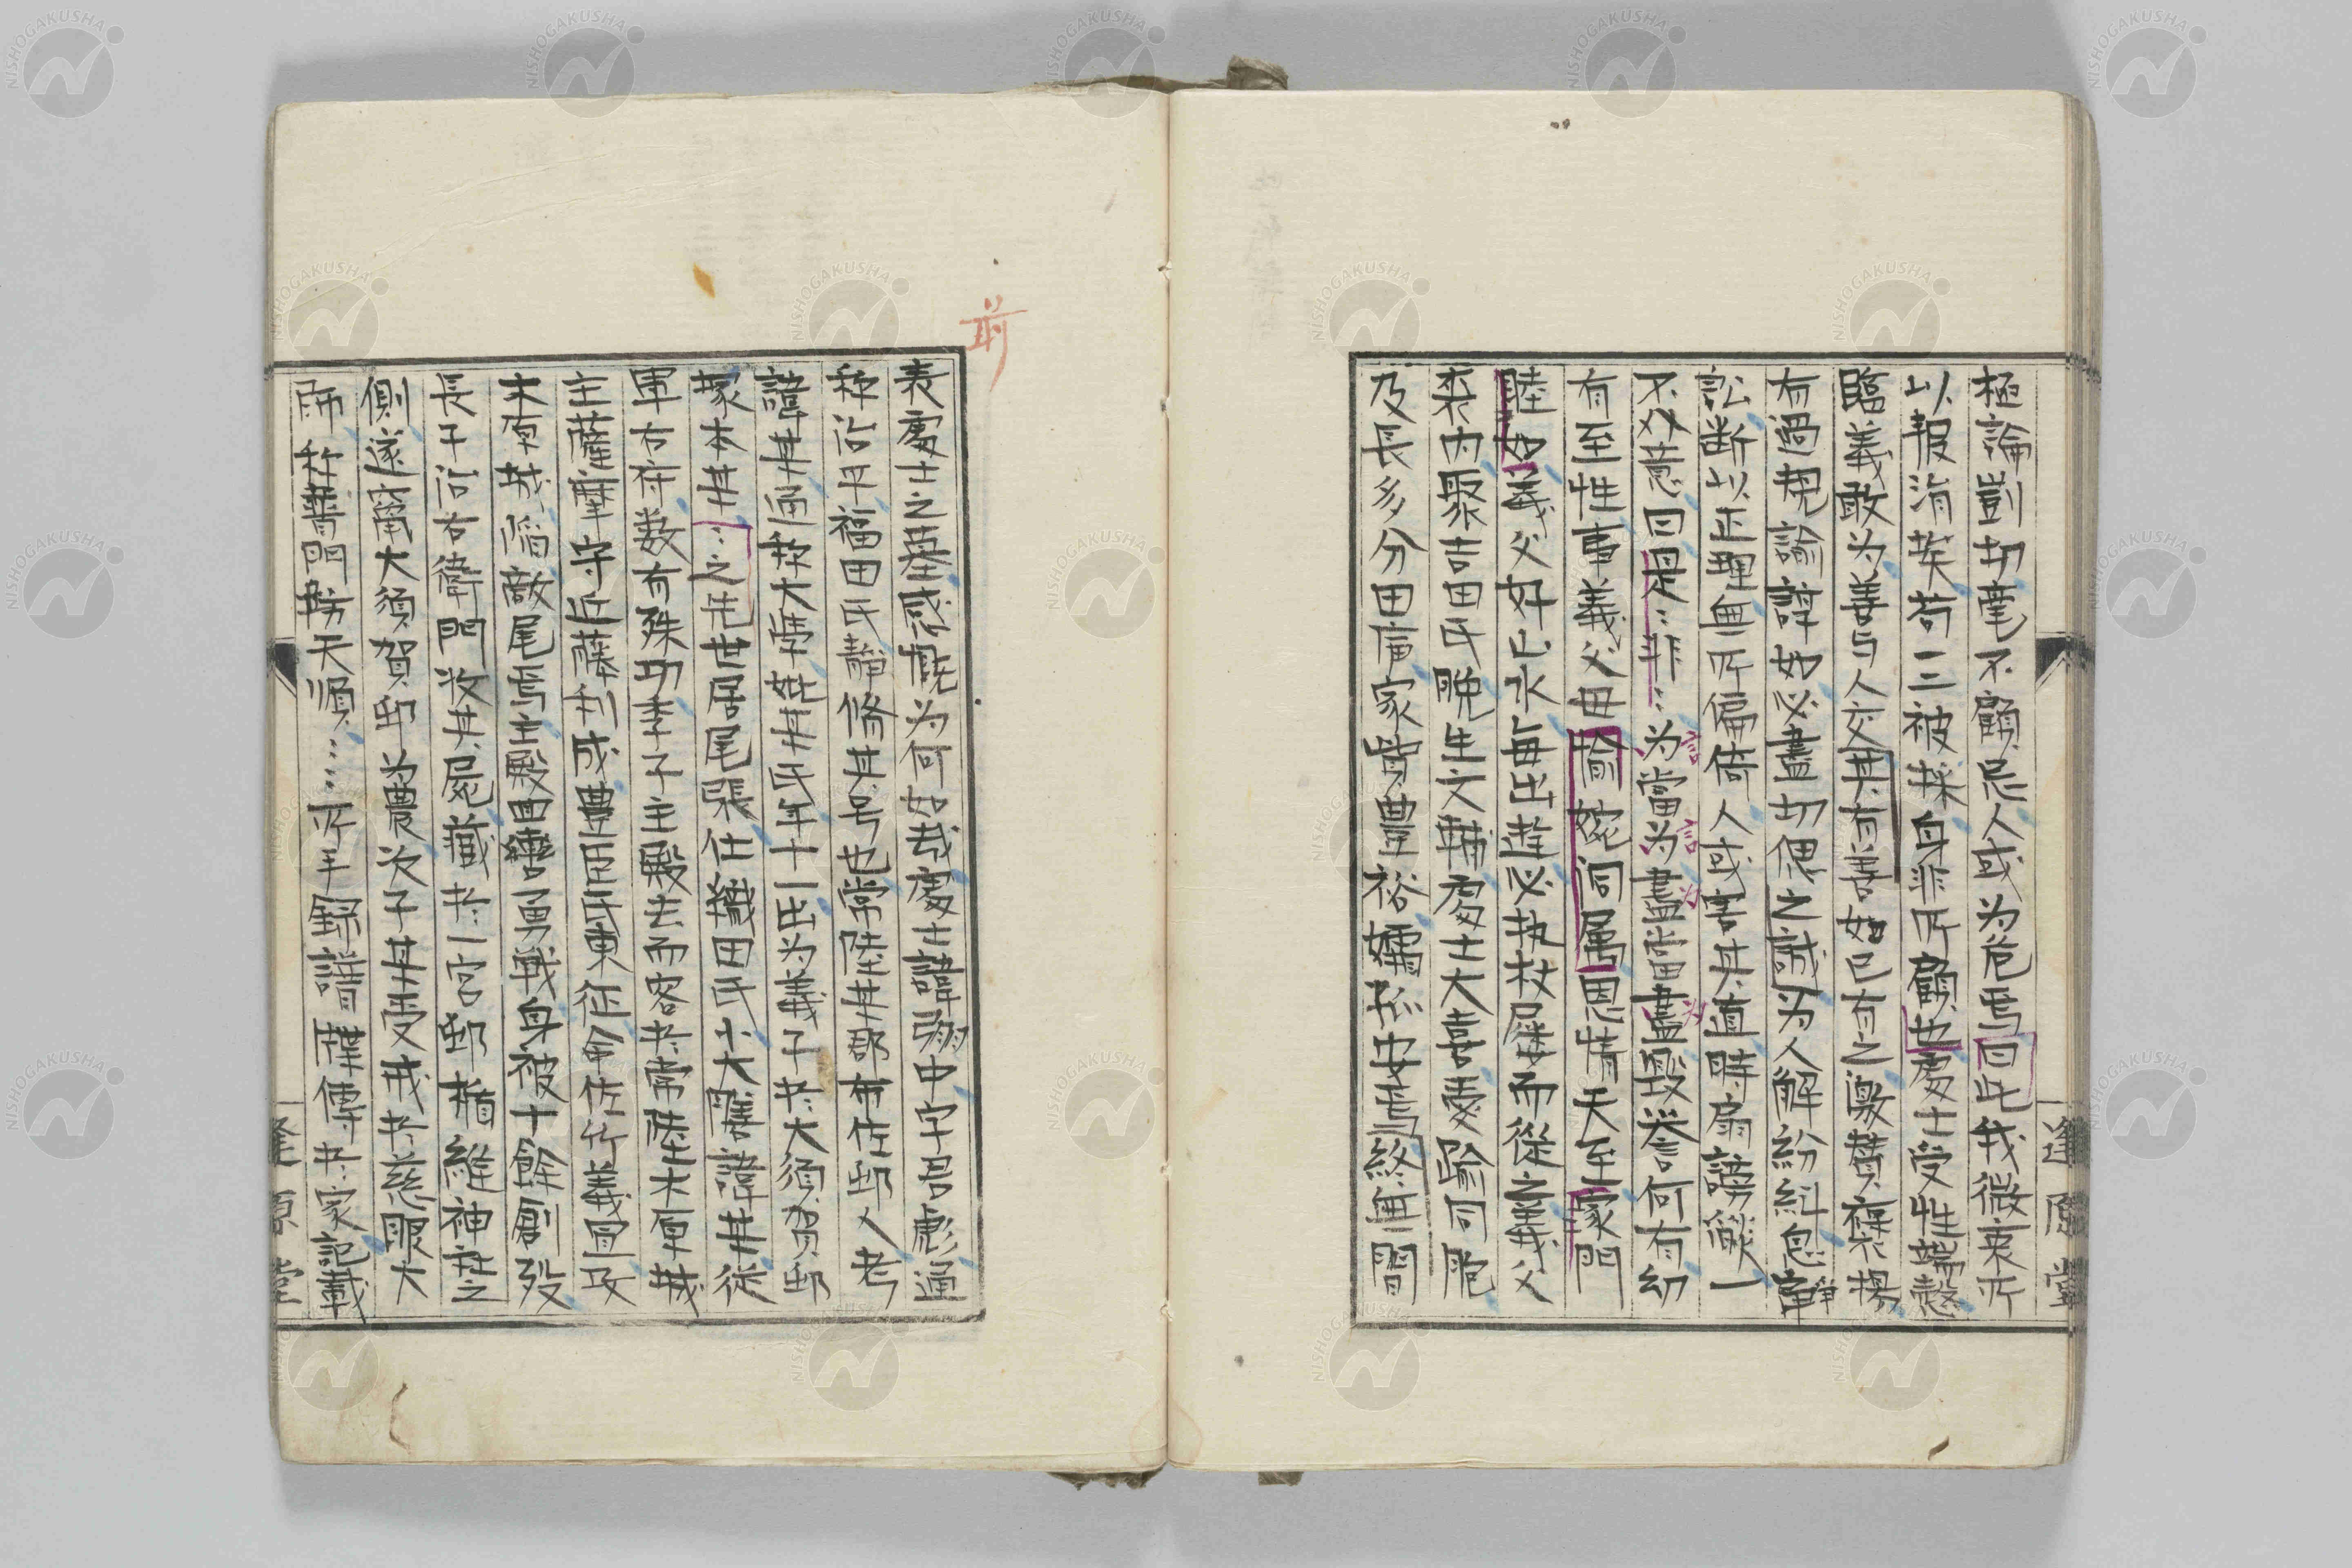 極論剴切毫不顧忌人或为危焉曰此我微衷所
以報涓埃苟二三被採身非所顧也處士受性端愨
臨義敢为善与人交其有善如己有之激賛襃揚
有過規諭諄如必盡切偲之誠为人解紛糾息諍
訟断以正理無所偏倚人或害其直時扇謗燄一
不以意曰是：非：为當为盡當盡毀誉何有幼
言
言
为
为
有至性事義父母愉婉洞属恩情天至家門
睦如義父好山水毎出遊必执杖屨而從之義父
养内聚吉田氏晩生文輔處士大喜愛踰同胞
及長多分田宙家貲豊裕孀孫安焉終無間
逢原堂
前
表處士之墓感慨为何如哉處士諱弸中字君彪通
称治平福田氏静修其号也常陸其郡布佐邨人考
諱某通称大學妣某氏年十一出为義子於大須賀邨
塚本某：之先世居尾張仕織田氏小大膳諱某従
軍右府数有殊功季子主殿去而客於常陸木原城
主薩摩守近藤利成豊臣氏東征命佐竹義宣攻
木原城陥敵尾焉主殿留勇戦身被十餘創殁
長子治右衛門收其屍藏於一宮邨楯縫神社之
側遂竄大須賀邨为農次子某受戒於慈眼大
師称普門坊天順：：所手録譜牒傳於家記載
逢原堂
NISHOGAKUSHA